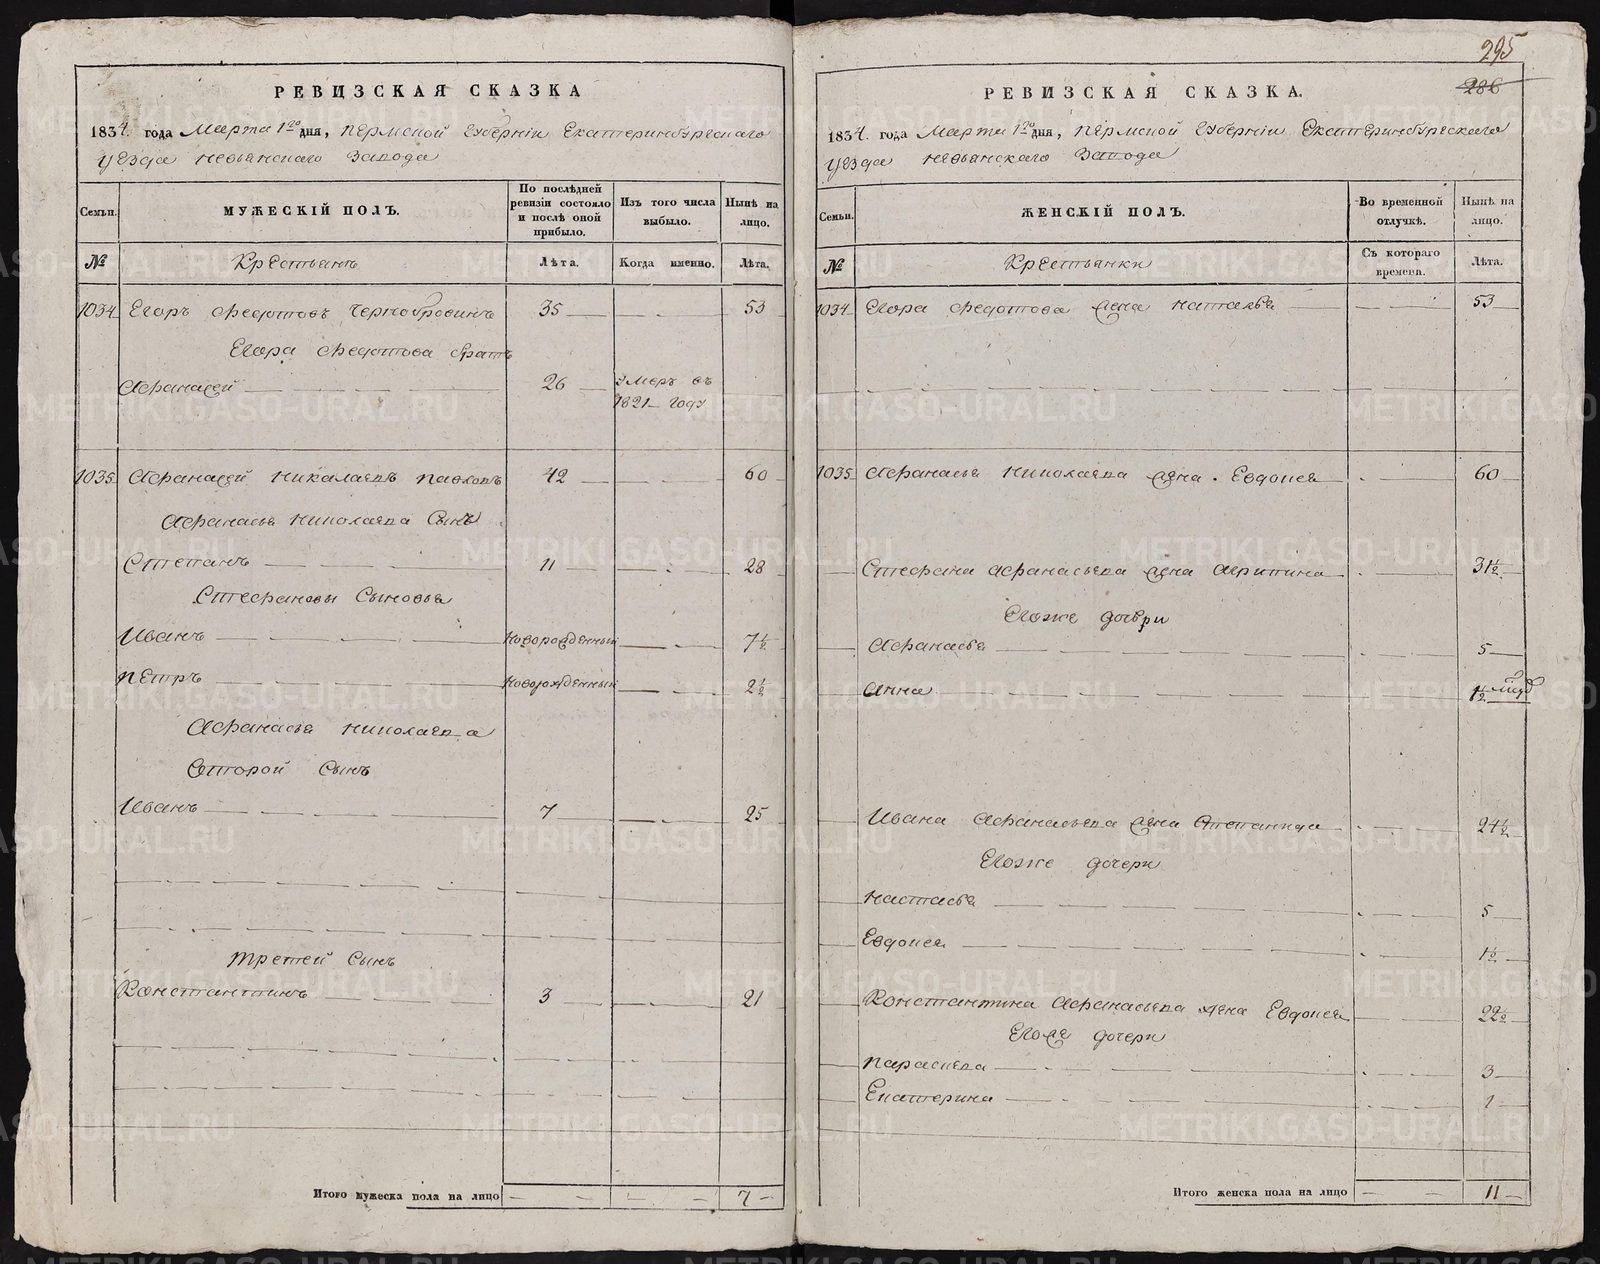 РЕВИЗСКАЯ СКАЗКА
1834. года Марта 1го дня, Пермской Губернiи Екатеринбургскаго
уезда Невьянскаго Завода
Семьи.
МУЖЕСКІЙ ПОЛЪ.
По послѣдней ревизіи состояло и послѣ оной прибыло.
Изъ того числа выбыло.
Нынѣ на лицо.
№ Крестьянъ Лѣта. Когда именно. Лѣта.
1034 Егоръ Федотовъ Чернобровинъ 35 53
Егора Федотова братъ
Афанасей 26 умеръ въ
1821 году
1035 Афанасей Николаевъ Павловъ 42 60
Афанасья Николаева Сынъ
Степанъ 11 28
Стефановы Сыновья
Иванъ новорожденный 7½
Петръ новорожденный 2½
Афанасья Николаева
второй Сынъ
Иванъ 7 25
Третей Сынъ
Константинъ 3 21
Итого мужеска пола на лицо 7
295
286
РЕВИЗСКАЯ СКАЗКА.
1834. года Марта 1го дня, Пермской Губернiи Екатеринбургскаго
уезда Невьянскаго Завода
Семьи.
ЖЕНСКІЙ ПОЛЪ.
Во временной отлучкѣ.
Нынѣ на лицо.
№ Крестьянки Съ котораго времени. Лѣта.
1034 Егора Федотова жена Наталья 53
1035 Афанасья Николаева жена Евдокея 60
Стефана Афанасьева жена Агрипина 31½
Егоже дочери
Афанасья 5
Анна 1½
Ивана Афанасьева жена Степанида 24½
Егоже дочери
Настасья 5
Евдокея 1½
Константина Афанасьева жена Евдокея 22½
Егоже дочери
Параскева 3
Екатерина 1
Итого женска пола на лицо 11
METRIKI.GASO-URAL.RU